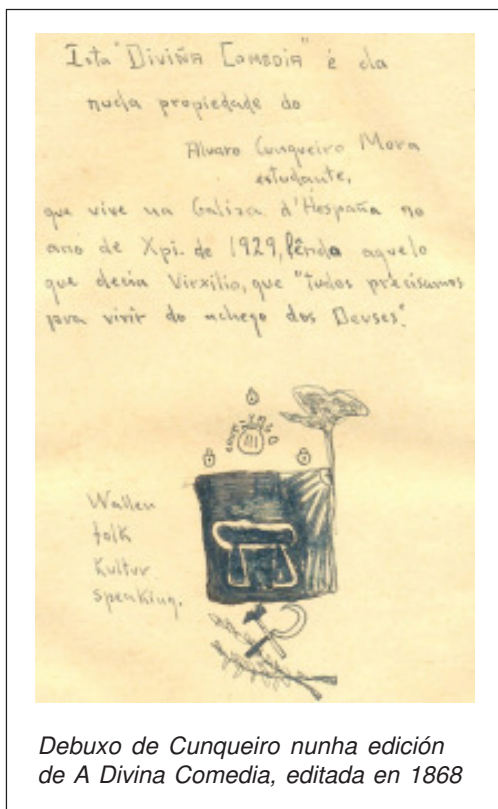 Ista "DIVIÑA COMEDIA" é da
nuda propiedade do
Alvaro Cunqueiro Mora
estudante,
que vive na Galiza d'Hespaña no
ano de Xpi. de 1929, lêndo aquelo
que decia Virxilio, que "todos precisamos
pra vivir do achego dos Deuses".
Wallen
folk
Kultur
speaking.
Debuxo de Cunqueiro nunha edición
de A Divina Comedia, editada en 1868